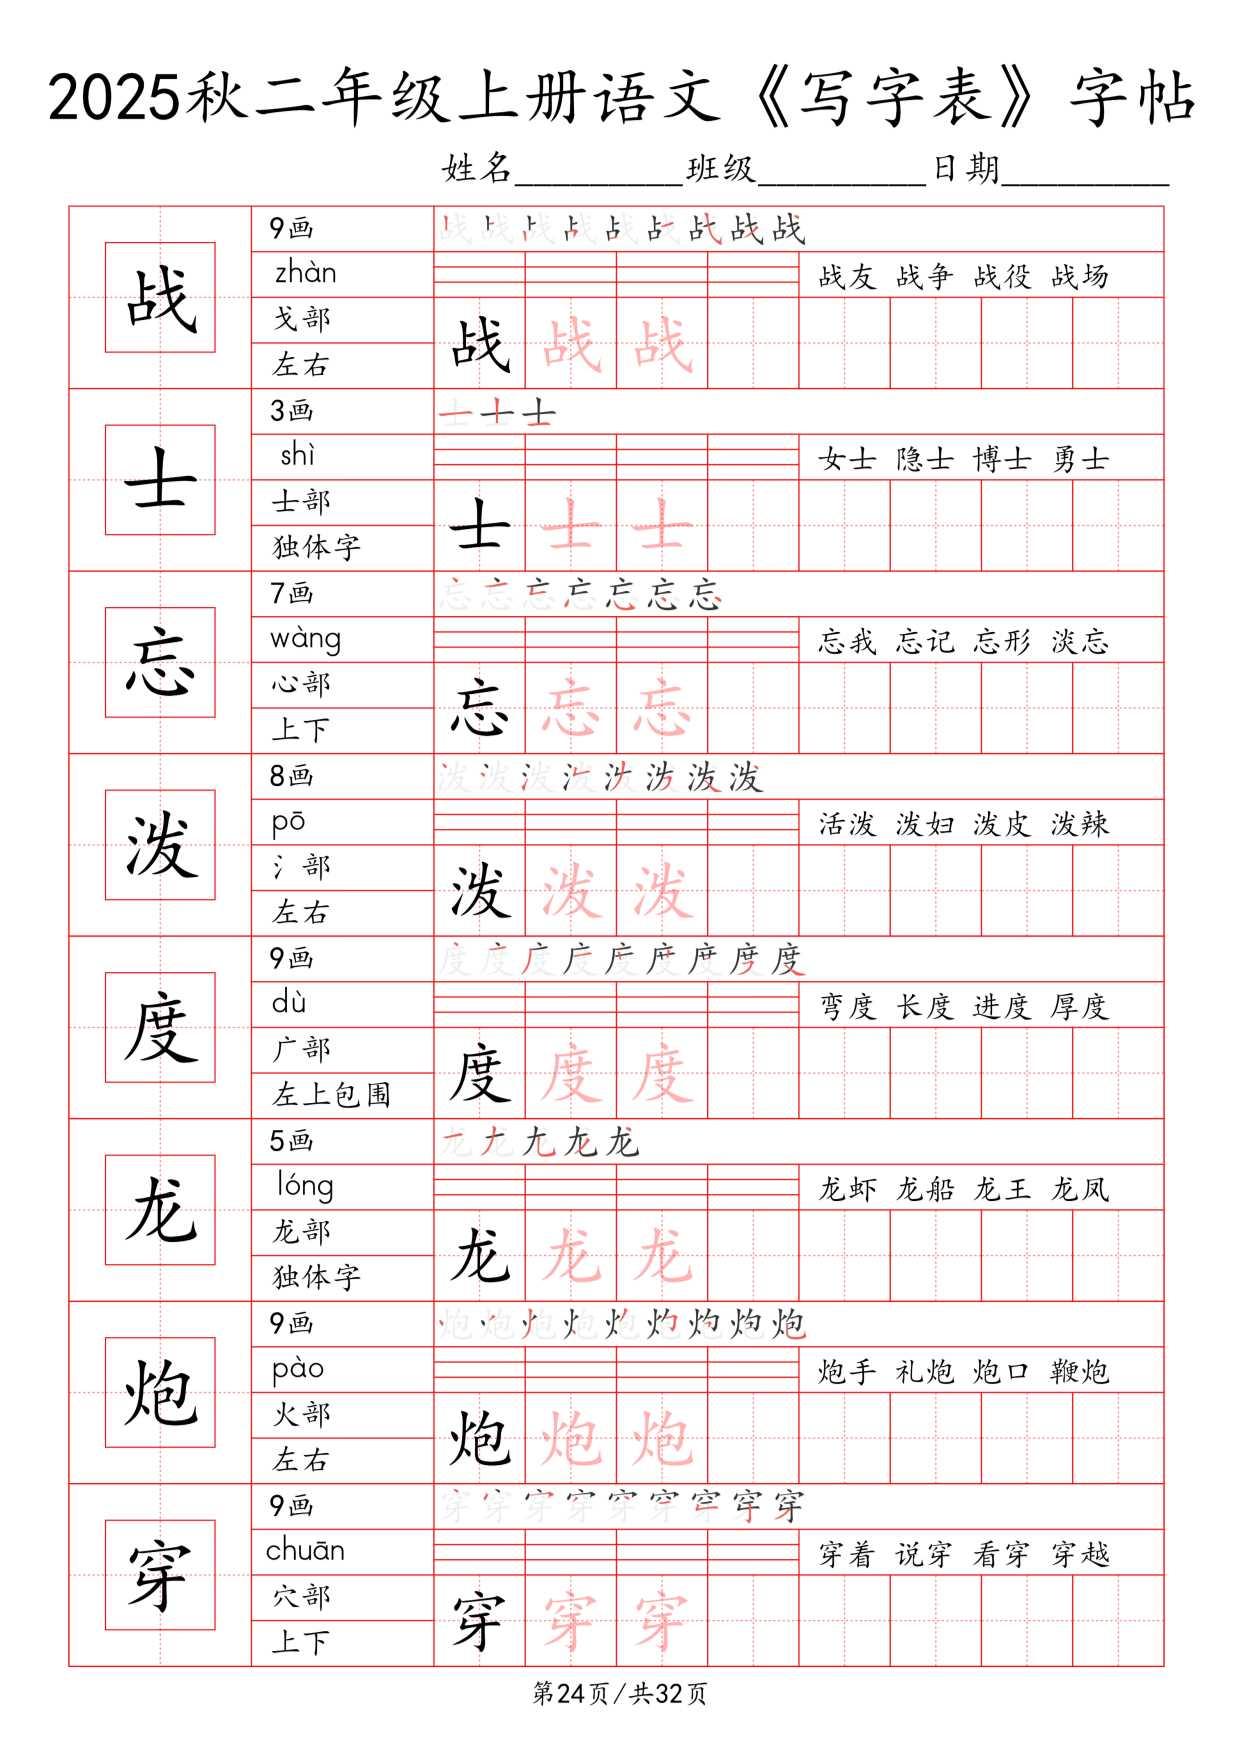 2025秋二年级上册语文《写字表》字帖
姓名_________班级_________日期_________
战
9画
战战战战战战战战战
zhàn
战友 战争 战役 战场
戈部
左右
战 战 战
士
3画
士士士
shì
女士 隐士 博士 勇士
士部
独体字
士 士 士
忘
7画
忘忘忘忘忘忘忘
wàng
忘我 忘记 忘形 淡忘
心部
上下
忘 忘 忘
泼
8画
泼泼泼泼泼泼泼泼
pō
活泼 泼妇 泼皮 泼辣
氵部
左右
泼 泼 泼
度
9画
度度度度度度度度度
dù
弯度 长度 进度 厚度
广部
左上包围
度 度 度
龙
5画
龙龙龙龙龙
lóng
龙虾 龙船 龙王 龙凤
龙部
独体字
龙 龙 龙
炮
9画
炮炮炮炮炮炮炮炮炮
pào
炮手 礼炮 炮口 鞭炮
火部
左右
炮 炮 炮
穿
9画
穿穿穿穿穿穿穿穿穿
chuān
穿着 说穿 看穿 穿越
穴部
上下
穿 穿 穿
第24页/共32页